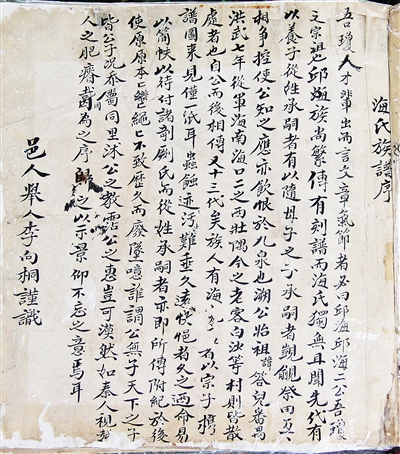 海氏族譜序
吾瓊人才輩出而言文章氣節者必曰邱海邱海二公吾瓊
之宗祖也邱海族尚繁傳有刻譜而海氏獨無耳聞先代有
以養子從姓承嗣者有以隨母子之子承嗣者覬覦祭田互
相爭控使公知之應亦飲恨於九泉也溯公始祖諱答兒番禺
洪武七年從軍海南海口二之西壯隅今之老窑白沙等村則皆散
處者也自公而後相傳又十三代矣族人有海有以宗子携
譜圖來見僅一紙耳蟲蝕迹污難垂久遠懊悒者久之廼命易
以箭帙以待付諸剞劂氏而從姓承嗣者亦即所傳附紀於後
使原原本已繩繩已不致歷久而廢墜噫誰謂公無子天下之子
皆公子況忝屬同里沐公之教霑公之惠豈可漠然如秦人視越
人之肥瘠哉為之序歸之以示景仰不忘之意焉耳
邑人舉人李向桐謹識